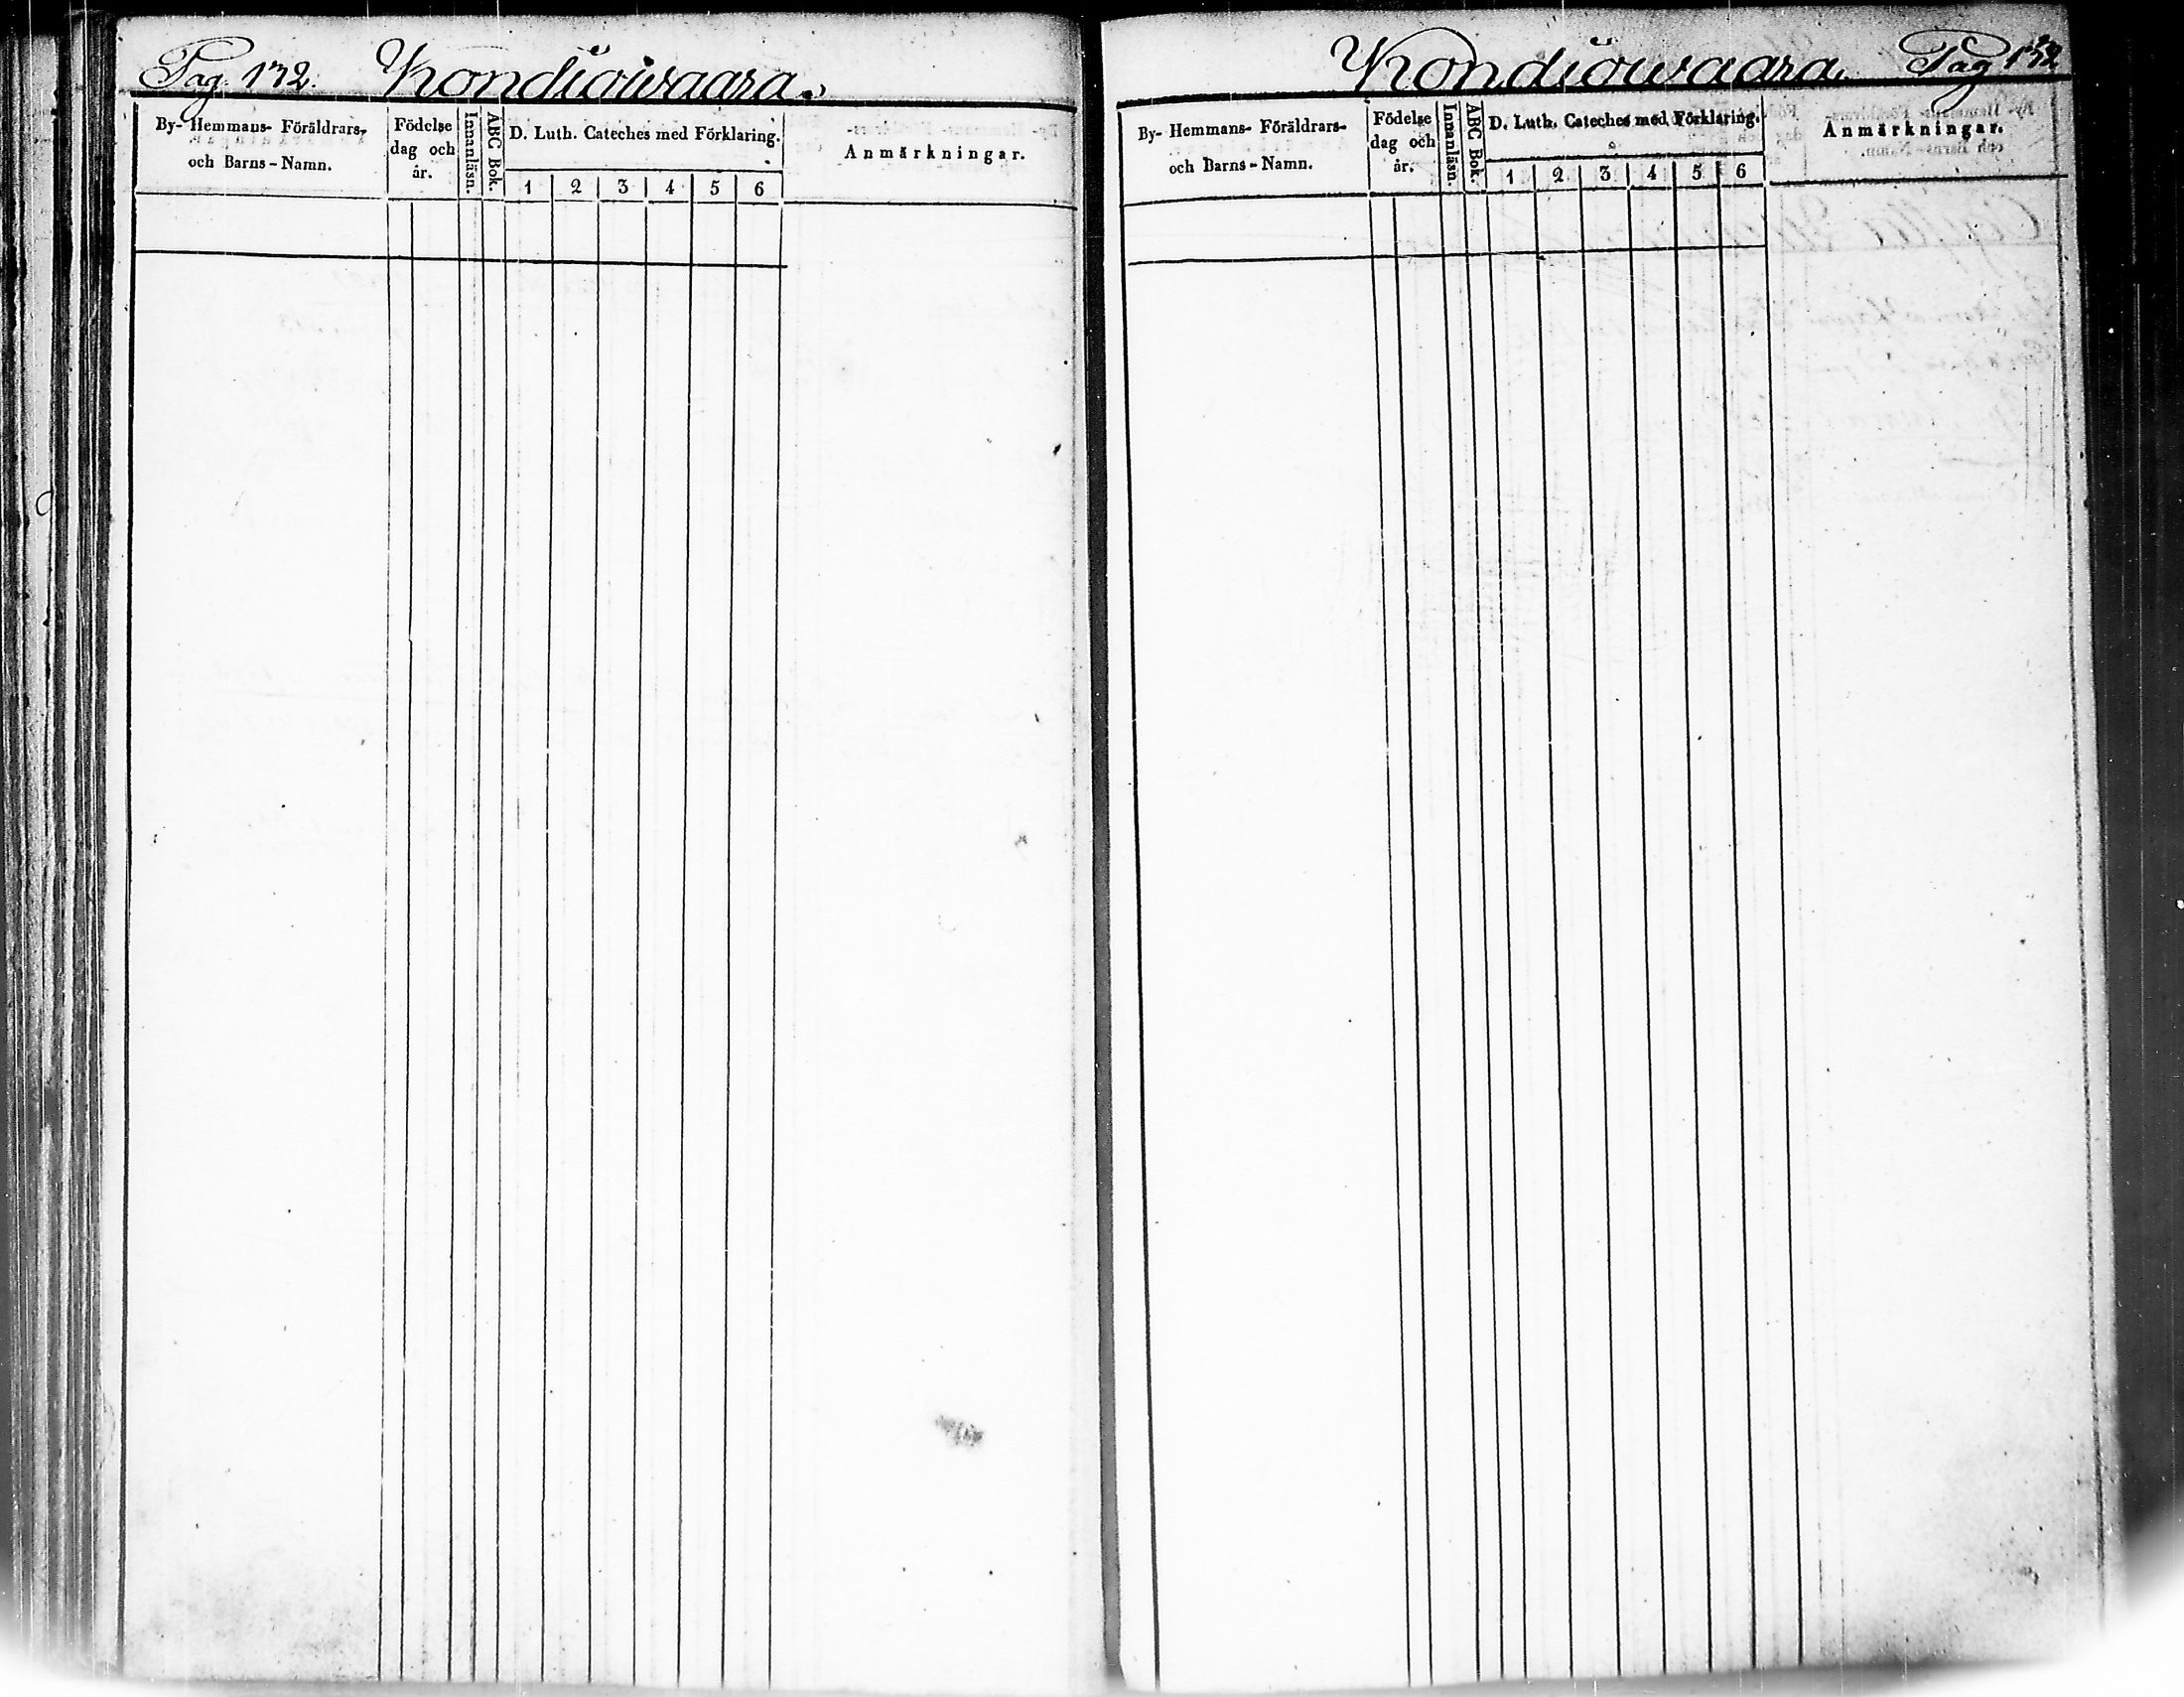 Pag. 132. Kondiowaara.
By- Hemmans- Föräldrars-
och Barns-Namn.
Födelse
dag och
år.
Innanläsn.
ABC Bok.
D. Luth. Cateches med Förklaring.
1 2 3 4 5 6
Anmärkningar.
Kondiowaara. Pag 132
By- Hemmans- Föräldrars-
och Barns-Namn.
Födelse
dag och
år.
Innanläsn.
ABC Bok.
D. Luth. Cateches med Förklaring.
1 2 3 4 5 6
Anmärkningar.